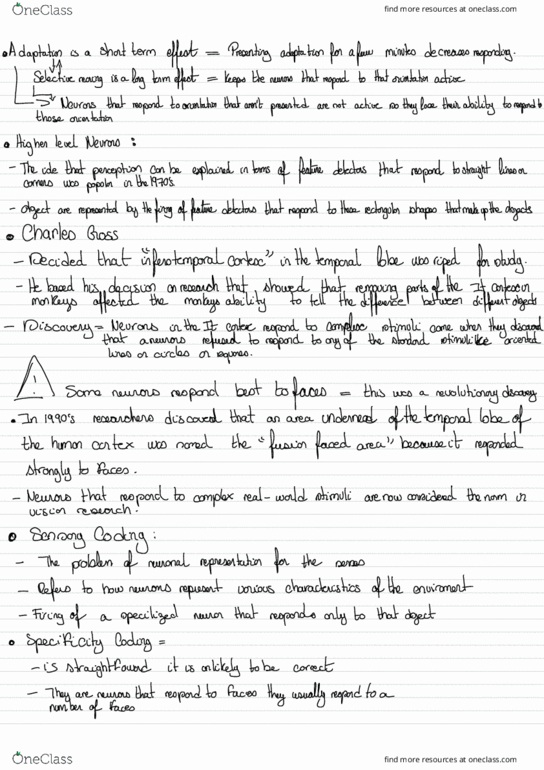 OneClass
find more resources at oneclass.com
Adaptation is a short term effect = Presenting adaptation for a few minutes decreases responding.
Selective rearing is a long term effect = keeps the neurons that respond to that orientation active
Neurons that respond to orientation that aren't presented are not active so they lose their ability to respond to
those orientation
Higher level Neurons :
- The ide that perception can be explained in terms of feature detectors that respond to straight lines or
corners was popular in the 1970's.
- object are represented by the firing of feature detectors that respond to these rectangular shapes that make up the objects
Charles Gross
- Decided that "inferotemporal cortex" in the temporal lobe was riped for study.
- He based his decision on research that showed that removing parts of the It cortex in
monkeys affected the monkeys ability to tell the difference between different objects
- Discovery = Neurons in the It cortex respond to complex stimuli came when they discovered
that a neurons refused to respond to any of the standard stimuli like oriented
lines or circles or squares.
! Some neurons respond best to faces = this was a revolutionary discovery
In 1990's researchers discovered that an area underneath of the temporal lobe of
the human cortex was named the "fusion faced area" because it responded
strongly to faces.
- Neurons that respond to complex real-world stimuli are now considered the norm in
vision research.
Sensory Coding :
- The problem of neuronal representation for the senses
- Refers to how neurons represent various characteristics of the enviroment
- Firing of a specilized neuron that responds only to that object
Specificity Coding =
- is straightfoward it is unlikely to be correct
- They are neurons that respond to faces they usually respond to a
number of faces
OneClass
find more resources at oneclass.com